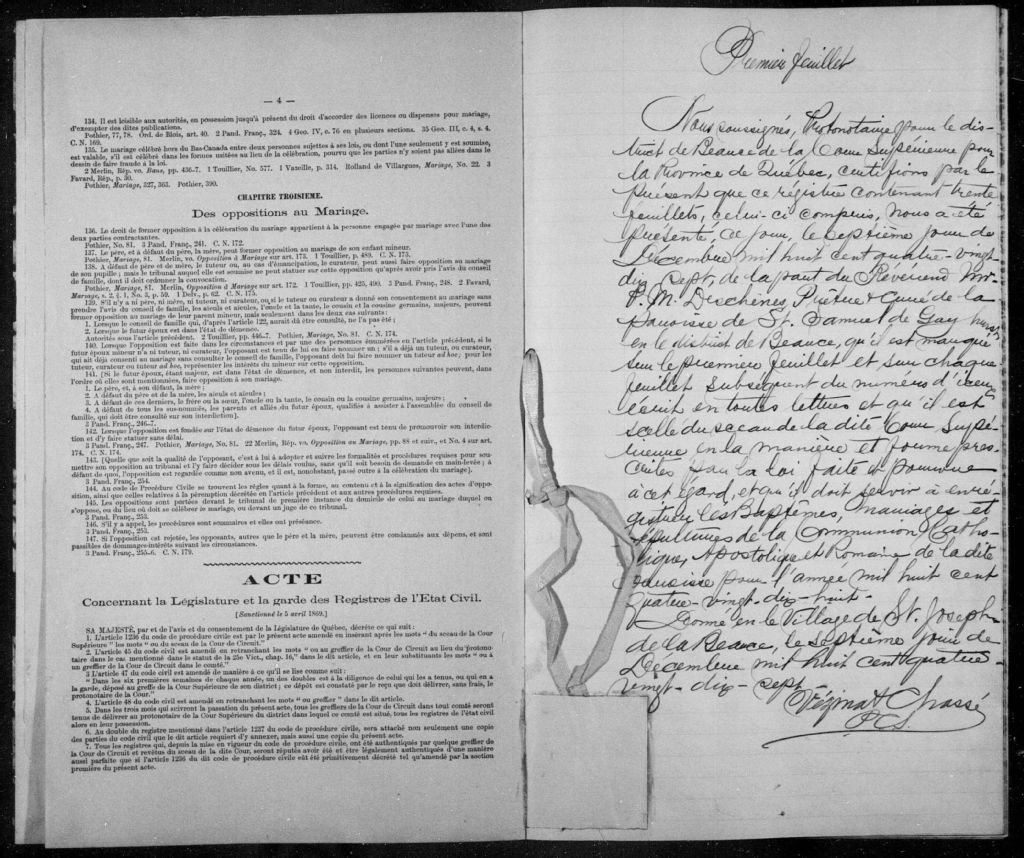 — 4 —
134. Il est loisible aux autorités, en possession jusqu'à présent du droit d'accorder des licences ou dispenses pour mariage,
d'exempter des dites publications.
Pothier, 77, 78. Ord. de Blois, art. 40. 2 Pand. Franç., 324. 4 Geo. IV, c. 76 en plusieurs sections. 35 Geo. III, c. 4, s. 4.
C. N. 169.
135. Le mariage célébré hors du Bas-Canada entre deux personnes sujettes à ses lois, ou dont l'une seulement y est soumise,
est valable, s'il est célébré dans les formes usitées au lieu de la célébration, pourvu que les parties n'y soient pas allées dans le
dessin de faire fraude à la loi.
2 Merlin, Rép. vo. Bans, pp. 436-7. 1 Touillier, No. 577. 1 Vazeille, p. 314. Rolland de Villargues, Mariage, No. 22. 3
Favard, Rép., p. 30.
Pothier, Mariage, 327, 363. Pothier, 390.
CHAPITRE TROISIEME.
Des oppositions au Mariage.
136. Le droit de former opposition à la célébration du mariage appartient à la personne engagée par mariage avec l'une des
deux parties contractantes.
Pothier, No. 81. 3 Pand. Franç., 241. C. N. 172.
137. Le père, et à défaut du père, la mère, peut former opposition au mariage de son enfant mineur.
Pothier, Mariage, 81. Merlin, vo. Opposition à Mariage sur art. 173. 1 Touillier, p. 489. C. N. 173.
138. A défaut de père et de mère, le tuteur ou, au cas d'émancipation, le curateur, peut aussi faire opposition au mariage
de son pupille ; mais le tribunal auquel elle est soumise ne peut statuer sur cette opposition qu'après avoir pris l'avis du conseil
de famille, dont il doit ordonner la convocation.
Pothier, Mariage, 81. Merlin, Opposition à Mariage sur art. 172. 1 Touillier, pp. 425, 490. 3 Pand. Franç., 248. 2 Favard,
Mariage, s. 2, § 1, No. 3, p. 59. 1 Delv., p. 62. C. N. 175.
139. S'il n'y a ni père, ni mère, ni tuteur, ni curateur, ou si le tuteur ou curateur a donné son consentement au mariage sans
prendre l'avis du conseil de famille, les aieuls et aieules, l'oncle et la tante, le cousin et la cousine germains, majeurs, peuvent
former opposition au mariage de leur parent mineur, mais seulement dans les deux cas suivants :
1. Lorsque le conseil de famille qui, d'après l'article 122, aurait dû être consulté, ne l'a pas été ;
2. Lorsque le futur époux est dans l'état de démence.
Autorités sous l'article précédent. 2 Touillier, pp. 446-7. Pothier, Mariage, No. 81. C. N. 174.
140. Lorsque l'opposition est faite dans les circonstances et par une des personnes énumérées en l'article précédent, si le
futur époux mineur n'a ni tuteur, ni curateur, l'opposant est tenu de lui en faire nommer un ; s'il a déjà un tuteur, ou curateur,
qui ait déjà consenti au mariage sans consulter le conseil de famille, l'opposant doit lui faire nommer un tuteur ad hoc ; pour les
tuteur, curateur ou tuteur ad hoc, représenter les intérêts du mineur sur cette opposition.
141. [Si le futur époux, étant majeur, est dans l'état de démence, et non interdit, les personnes suivantes peuvent, dans
l'ordre où elles sont mentionnées, faire opposition à son mariage.
1. Le père, et, à son défaut, la mère ;
2. A défaut du père et de la mère, les aieuls et aieules ;
3. A défaut de ces derniers, le frère ou la sœur, l'oncle ou la tante, le cousin ou la cousine germains, majeurs ;
4. A défaut de tous les sus-nommés, les parents et alliés du futur époux, qualifiés à assister à l'assemblée du conseil de
famille, qui doit être consulté sur son interdiction].
3 Pand. Franç., 246-7.
142. Lorsque l'opposition est fondée sur l'état de démence du futur époux, l'opposant est tenu de promouvoir son interdic-
tion et d'y faire statuer sans délai.
3 Pand. Franç., 247. Pothier, Mariage, No. 81. 22 Merlin, Rép. vo. Opposition au Mariage, pp. 88 et suiv., et No. 4 sur art.
174. C. N. 174.
143. [Quelle que soit la qualité de l'opposant, c'est à lui à adopter et suivre les formalités et procédures requises pour sou-
mettre son opposition au tribunal et l'y faire décider sous les délais voulus, sans qu'il soit besoin de demande en main-levée ; à
défaut de quoi, l'opposition est regardée comme non avenue, et il est, nonobstant, passé outre à la célébration du mariage].
3 Pand. Franç., 254.
144. Au code de Procédure Civile se trouvent les règles quant à la forme, au contenu et à la signification des actes d'oppo-
sition, ainsi que celles relatives à la péremption décrétée en l'article précédent et aux autres procédures requises.
145. Les oppositions sont portées devant le tribunal de première instance du domicile de celui au mariage duquel on
s'oppose, ou du lieu où doit se célébrer le mariage, ou devant un juge de ce tribunal.
3 Pand. Franç., 253.
146. S'il y a appel, les procédures sont sommaires et elles ont préséance.
3 Pand. Franç., 253.
147. Si l'opposition est rejetée, les opposants, autres que le père et la mère, peuvent être condamnés aux dépens, et sont
passibles de dommages-intérêts suivant les circonstances.
3 Pand. Franç., 255-6. C. N. 179.
ACTE
Concernant la Législature et la garde des Registres de l'Etat Civil.
[Sanctionné le 5 avril 1869.]
SA MAJESTÉ, par et de l'avis et du consentement de la Législature de Québec, décrète ce qui suit :
1. L'article 1236 du code de procédure civile est par le présent acte amendé en insérant après les mots " du sceau de la Cour
Supérieure " les mots " ou du sceau de la Cour de Circuit."
2. L'article 45 du code civil est amendé en retranchant les mots " ou au greffier de la Cour de Circuit au lieu du protono-
taire dans le cas mentionné dans le statut de la 25e Vict., chap. 16," dans le dit article, et en leur substituants les mots " ou à
un greffier de la Cour de Circuit dans le comté."
3 L'article 47 du code civil est amendé de manière à ce qu'il se lise comme suit :
" Dans les six premières semaines de chaque année, un des doubles est à la diligence de celui qui les a tenus, ou qui en a
la garde, déposé au greffe de la Cour Supérieure de son district ; ce dépôt est constaté par le reçu que doit délivrer, sans frais, le
protonotaire de la Cour."
4. L'article 48 du code civil est amendé en retranchant les mots " ou greffier " dans le dit article.
5. Dans les trois mois qui suivront la passation du présent acte, tous les greffiers de la Cour de Circuit dans tout comté seront
tenus de délivrer au protonotaire de la Cour Supérieure du district dans lequel ce comté est situé, tous les registres de l'état civil
alors en leur possession.
6. Au double du registre mentionné dans l'article 1237 du code de procédure civile, sera attaché non seulement une copie
des parties du code civile que le dit article requiert d'y annexer, mais aussi une copie du présent acte.
7. Tous les registres qui, depuis la mise en vigueur du code de procédure civile, ont été authentiqués par quelque greffier de
la Cour de Circuit et revêtus du sceau de la dite Cour, seront réputés avoir été et être légalement authentiqués d'une manière
aussi parfaite que si l'article 1236 du dit code de procédure civile eût été primitivement décrété tel qu'amendé par la section
première du présent acte.
Premier feuillet
Nous soussignés, Protonotaire pour le dis-
trict de Beauce de la Cour Supérieure pour
la Province de Québec, certifions par le
présent que ce régistre contenant trente
feuillets, celui-ci compris, nous a été
présenté, ce jour, le septième jour de
Décembre mil huit cent quatre-vingt
dix sept, de la part du Révérend Mr.
P. M. Deschênes, Prêtre & Curé de la
paroisse de St. Samuel de Gay hurst
en le district de Beauce, qu'il est marqué
sur le premier feuillet et sur chaque
feuillet subséquent du numéro d'iceux
écrit en toutes lettres et qu'il est
scellé du sceau de la dite Cour Supé-
rieure en la manière et forme pres-
crites par la loi faite et pourvue
à cet égard, et qu'il doit servir à enré-
gistrer les Baptêmes, mariages et
sépultures de la Communion Catho-
lique, Apostolique et Romaine de la dite
paroisse pour l'année mil huit cent
quatre-vingt-dix-huit.
Donné en le Village de St. Joseph
de la Beauce, le septième jour de
Décembre mil huit cent quatre-
vingt-dix-sept
Véxina & Chassé
P. C. S.